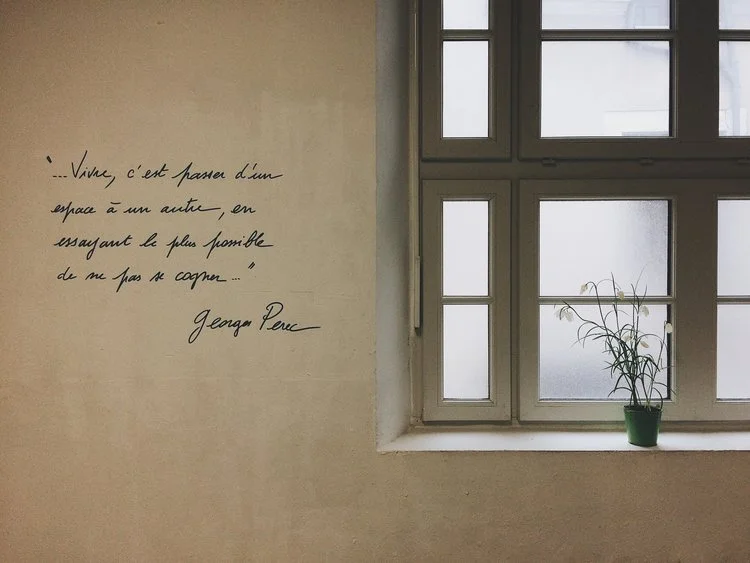 "...Vivre, c'est passer d'un
espace à un autre, en
essayant le plus possible
de ne pas se cogner..."
Georges Perec